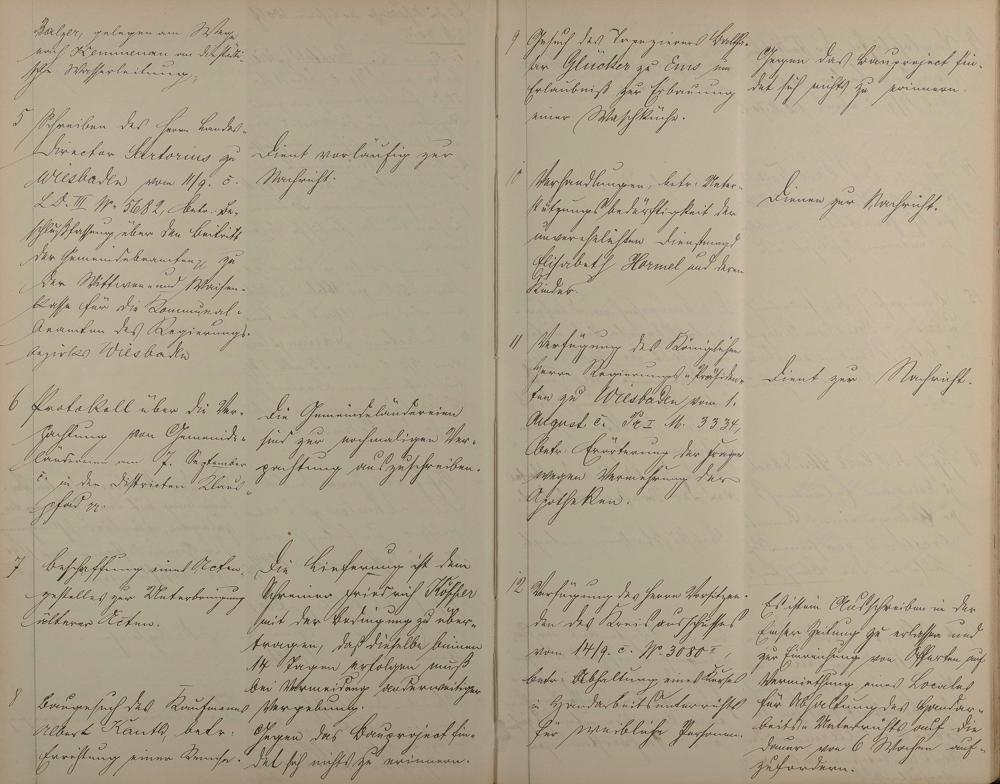 Balzer, gelegen am Wege
nach Kemmenau an der städti-
sche Wasserleitung,
5 Schreiben des Herrn Landes-
director Sartorius zu
Wiesbaden vom 11/9. c.
L.D. III No 5682, betr. Be-
schlußfassung über den Beitritt
der Gemeindebeamten zu
der Wittwen- und Waisen-
kasse für die Communal-
beamten des Regierungs-
bezirkes Wiesbaden
Dient vorläufig zur
Nachricht.
6 Protokoll über die Ver-
pachtung von Gemeinde-
ländereien am 7. September
c. in den Distrikten Klaus-
pfad pp.
Die Gemeindeländereien
sind zur nochmaligen Ver-
pachtung auszuschreiben.
7 Beschaffung eines Acten-
gestelles zur Unterbringung
älterer Acten.
Die Lieferung ist dem
Schreiner Friedrich
mit der Bedingung zu über-
tragen, daß dieselbe binnen
14 Tagen erfolgen muß
bei Vermeidung anderweitiger
Vergebung.
8 Baugesuch des Kaufmanns
Albert Kauth, betr.
Errichtung einer Remise.
Gegen das Bauproject fin-
det sich nichts zu erinnern.
9 Gesuch des Tapezierers Baltha-
sar Glücker zu Ems um
Erlaubniß zur Erbauung
einer Waschküche.
Gegen das Bauproject fin-
det sich nichts zu erinnern.
10 Verhandlungen, betr. Unter-
stützungsbedürftigkeit der
unverehelichten Dienstmagd
Elisabeth Hormel und deren
Kinder.
Dienen zur Nachricht.
11 Verfügung des Königlichen
Herrn Regierungs-Präsiden-
ten zu Wiesbaden vom 1.
August c. Pr. I No. 3334,
betr. Erörterung der Frage
wegen Vermehrung der
Apotheken.
Dient zur Nachricht.
12 Verfügung des Herrn Vorsitzen-
den des Kreisausschusses
vom 14/9. c. No 3080 I,
betr. Abhaltung eines Kurses
in Handarbeitsunterricht
für weibliche Personen.
Es ist ein Ausschreiben in der
Emser Zeitung zu erlassen und
zur Einreichung von Offerten auf
Vermiethung eines Locales
für Abhaltung des Handar-
beits-Unterrichts auf die
Dauer von 6 Wochen auf-
zufordern.